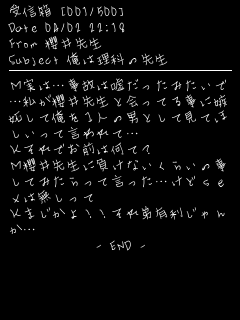 受信箱 [001/500]
Date 04/02 22:18
From 櫻井先生
Subject 俺は理科の先生
M実は…事故は嘘だったみたいで
…私が櫻井先生と会ってる事に嫉
妬して俺を1人の男として見てほ
しいって言われて…
Kそれでお前は何て?
M櫻井先生に負けないくらいの事
してみたらって言った…けどse
xは無しって
Kまじかよ!!それ第有利じゃん
か…
- END -